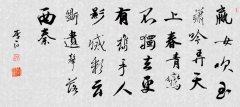 嬴女吹玉
簫吟弄天
上春青鸞
不獨去更
有攜手人
影滅彩云
斷遺聲落
西秦